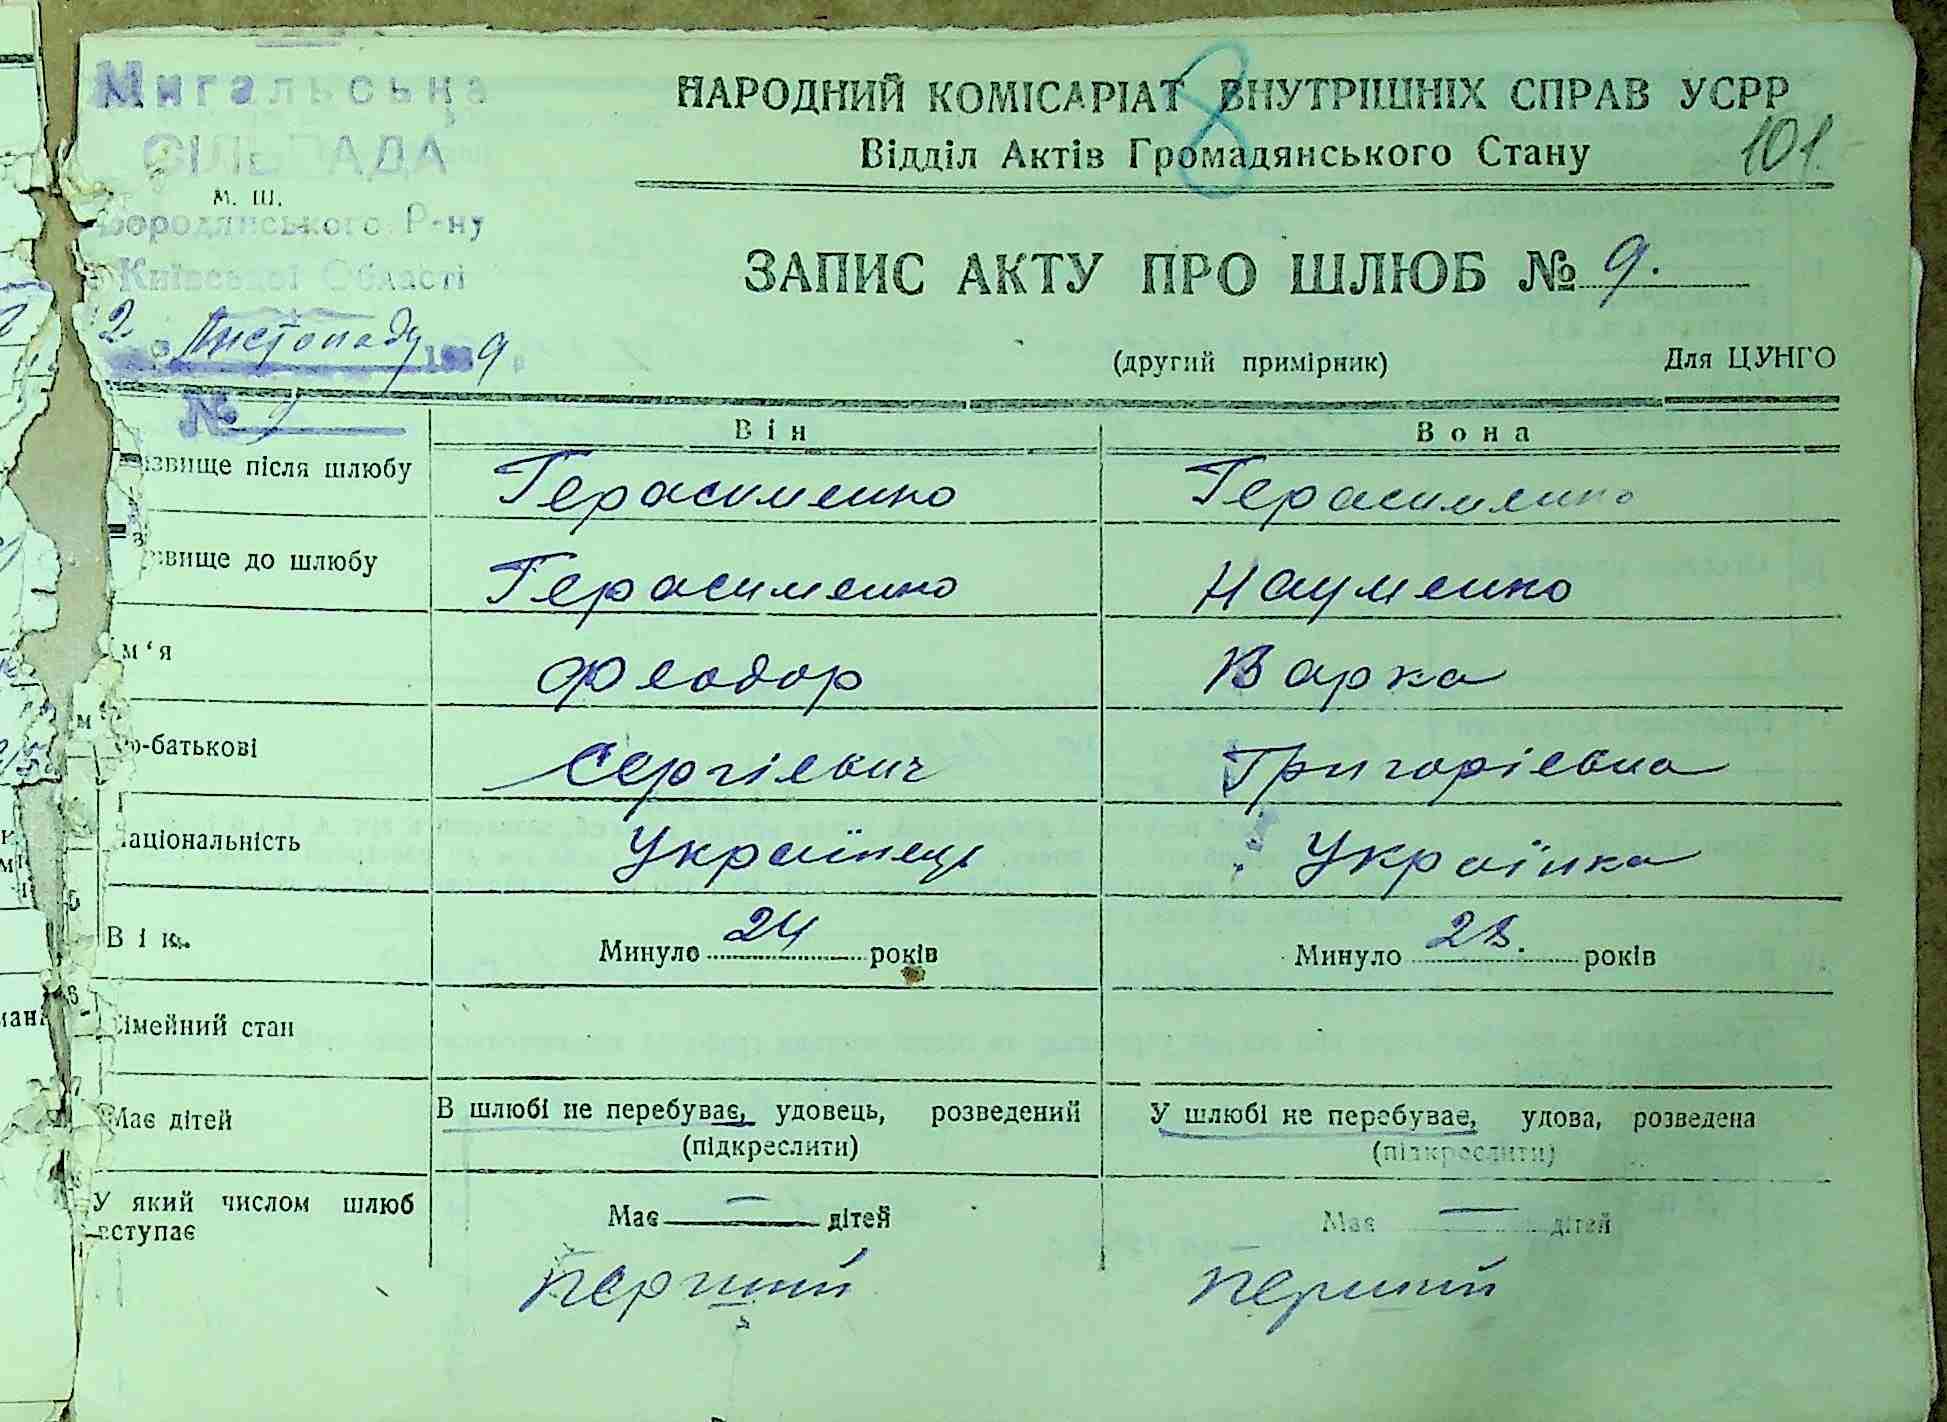 Мигальська
СІЛЬРАДА
м. ш.
Бородянського Р-ну
Київської Області
2. Листопаду 1939 р
№ 9
НАРОДНИЙ КОМІСАРІАТ ВНУТРІШНІХ СПРАВ УСРР
8
Відділ Актів Громадянського Стану
101.
ЗАПИС АКТУ ПРО ШЛЮБ № 9.
(другий примірник) Для ЦУНГО
Він Вона
ізвище після шлюбу Герасименко Герасименко
звище до шлюбу Герасименко Науменко
м'я Феодор Варка
о-батькові Сергієвич Григорієвна
аціональність Українець Українка
Вік Минуло 24 років Минуло 23. років
імейний стан
Має дітей В шлюбі не перебуває, удовець, розведений У шлюбі не перебуває, удова, розведена
(підкреслити) (підкреслити)
У який числом шлюб
вступає
Має — дітей Має — дітей
Перший Перший